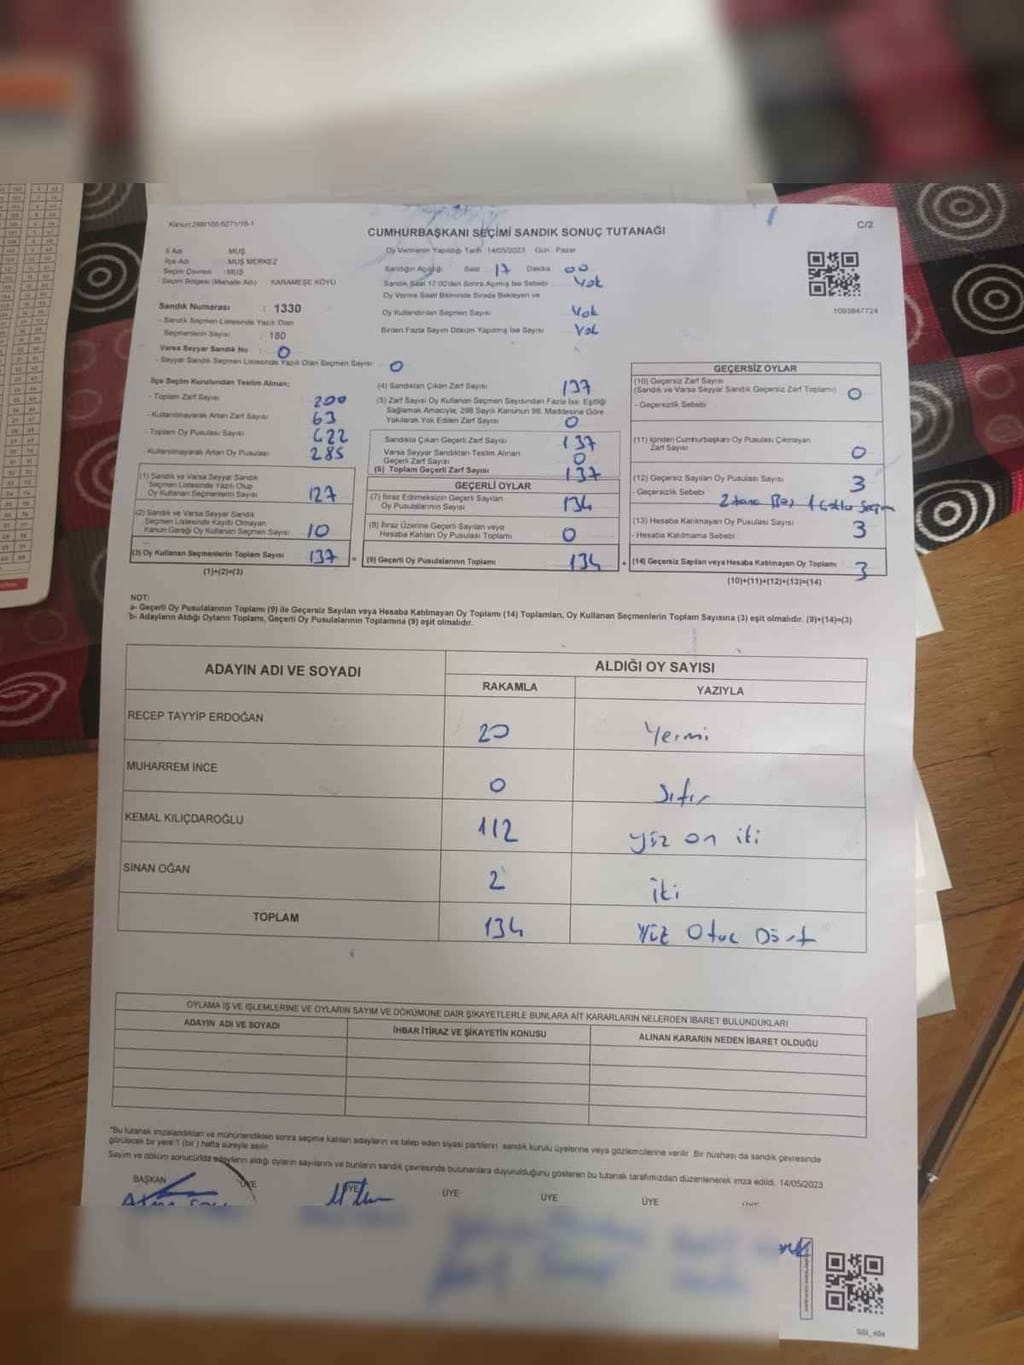 Kanun:298/105-6271/16-1
C/2
CUMHURBAŞKANI SEÇİMİ SANDIK SONUÇ TUTANAĞI
İl Adı : MUŞ
İlçe Adı : MUŞ MERKEZ
Seçim Çevresi : MUŞ
Seçim Bölgesi (Mahalle Adı) : KARAMEŞE KÖYÜ
Oy Vermenin Yapıldığı Tarih : 14/05/2023 Gün : Pazar
Sandığın Açıldığı Saat 17 Dakika 00
Sandık Saat 17.00'den Sonra Açılmış İse Sebebi Yok
Oy Verme Saati Bitiminde Sırada Bekleyen ve
Oy Kullandırılan Seçmen Sayısı Yok
Birden Fazla Sayım Döküm Yapılmış İse Sayısı Yok
1093847724
Sandık Numarası : 1330
- Sandık Seçmen Listesinde Yazılı Olan
Seçmenlerin Sayısı : 180
Varsa Seyyar Sandık No : 0
- Seyyar Sandık Seçmen Listesinde Yazılı Olan Seçmen Sayısı : 0
İlçe Seçim Kurulundan Teslim Alınan;
- Toplam Zarf Sayısı 200
- Kullanılmayarak Artan Zarf Sayısı 63
- Toplam Oy Pusulası Sayısı 422
- Kullanılmayarak Artan Oy Pusulası 285
(1) Sandık ve Varsa Seyyar Sandık
Seçmen Listesinde Yazılı Olup
Oy Kullanan Seçmenlerin Sayısı 127
(2) Sandık ve Varsa Seyyar Sandık
Seçmen Listesinde Kaydı Olmayan
Kanun Gereği Oy Kullanan Seçmen Sayısı 10
(3) Oy Kullanan Seçmenlerin Toplam Sayısı 137
(1)+(2)=(3)
(4) Sandıktan Çıkan Zarf Sayısı 137
(5) Zarf Sayısı Oy Kullanan Seçmen Sayısından Fazla İse, Eşitliği
Sağlamak Amacıyla, 298 Sayılı Kanunun 98. Maddesine Göre
Yakılarak Yok Edilen Zarf Sayısı 0
Sandıkta Çıkan Geçerli Zarf Sayısı 137
Varsa Seyyar Sandıktan Teslim Alınan
Geçerli Zarf Sayısı 0
(6) Toplam Geçerli Zarf Sayısı 137
GEÇERLİ OYLAR
(7) İtiraz Edilmeksizin Geçerli Sayılan
Oy Pusulalarının Sayısı 134
(8) İtiraz Üzerine Geçerli Sayılan veya
Hesaba Katılan Oy Pusulası Toplamı 0
(9) Geçerli Oy Pusulalarının Toplamı 134
GEÇERSİZ OYLAR
(10) Geçersiz Zarf Sayısı
(Sandık ve Varsa Seyyar Sandık Geçersiz Zarf Toplamı) 0
- Geçersizlik Sebebi
(11) İçinden Cumhurbaşkanı Oy Pusulası Çıkmayan
Zarf Sayısı 0
(12) Geçersiz Sayılan Oy Pusulası Sayısı 3
- Geçersizlik Sebebi 2 tane Boş 1
(13) Hesaba Katılmayan Oy Pusulası Sayısı 3
- Hesaba Katılmama Sebebi
(14) Geçersiz Sayılan veya Hesaba Katılmayan Oy Toplamı 3
(10)+(11)+(12)+(13)=(14)
NOT:
a- Geçerli Oy Pusulalarının Toplamı (9) ile Geçersiz Sayılan veya Hesaba Katılmayan Oy Toplamı (14) Toplamları, Oy Kullanan Seçmenlerin Toplam Sayısına (3) eşit olmalıdır. (9)+(14)=(3)
b- Adayların Aldığı Oyların Toplamı, Geçerli Oy Pusulalarının Toplamına (9) eşit olmalıdır.
ADAYIN ADI VE SOYADI ALDIĞI OY SAYISI
RAKAMLA YAZIYLA
RECEP TAYYİP ERDOĞAN 20 Yermi
MUHARREM İNCE 0 Sıfır
KEMAL KILIÇDAROĞLU 112 yüz on iki
SİNAN OĞAN 2 iki
TOPLAM 134 Yüz Otuz Dört
OYLAMA İŞ VE İŞLEMLERİNE VE OYLARIN SAYIM VE DÖKÜMÜNE DAİR ŞİKAYETLERLE BUNLARA AİT KARARLARIN NELERDEN İBARET BULUNDUKLARI
ADAYIN ADI VE SOYADI İHBAR İTİRAZ VE ŞİKAYETİN KONUSU ALINAN KARARIN NEDEN İBARET OLDUĞU
*Bu tutanak imzalandıktan ve mühürlendikten sonra seçime katılan adayların ve talep eden siyasi partilerin sandık kurulu üyelerine veya gözlemcilerine verilir. Bir nüshası da sandık çevresinde
görülecek bir yere 1 (bir) hafta süreyle asılır.
Sayım ve döküm sonucunda adayların aldığı oyların sayılarını ve bunların sandık çevresinde bulunanlara duyurulduğunu gösteren bu tutanak tarafımızdan düzenlenerek imza edildi. 14/05/2023
BAŞKAN ÜYE ÜYE ÜYE ÜYE ÜYE